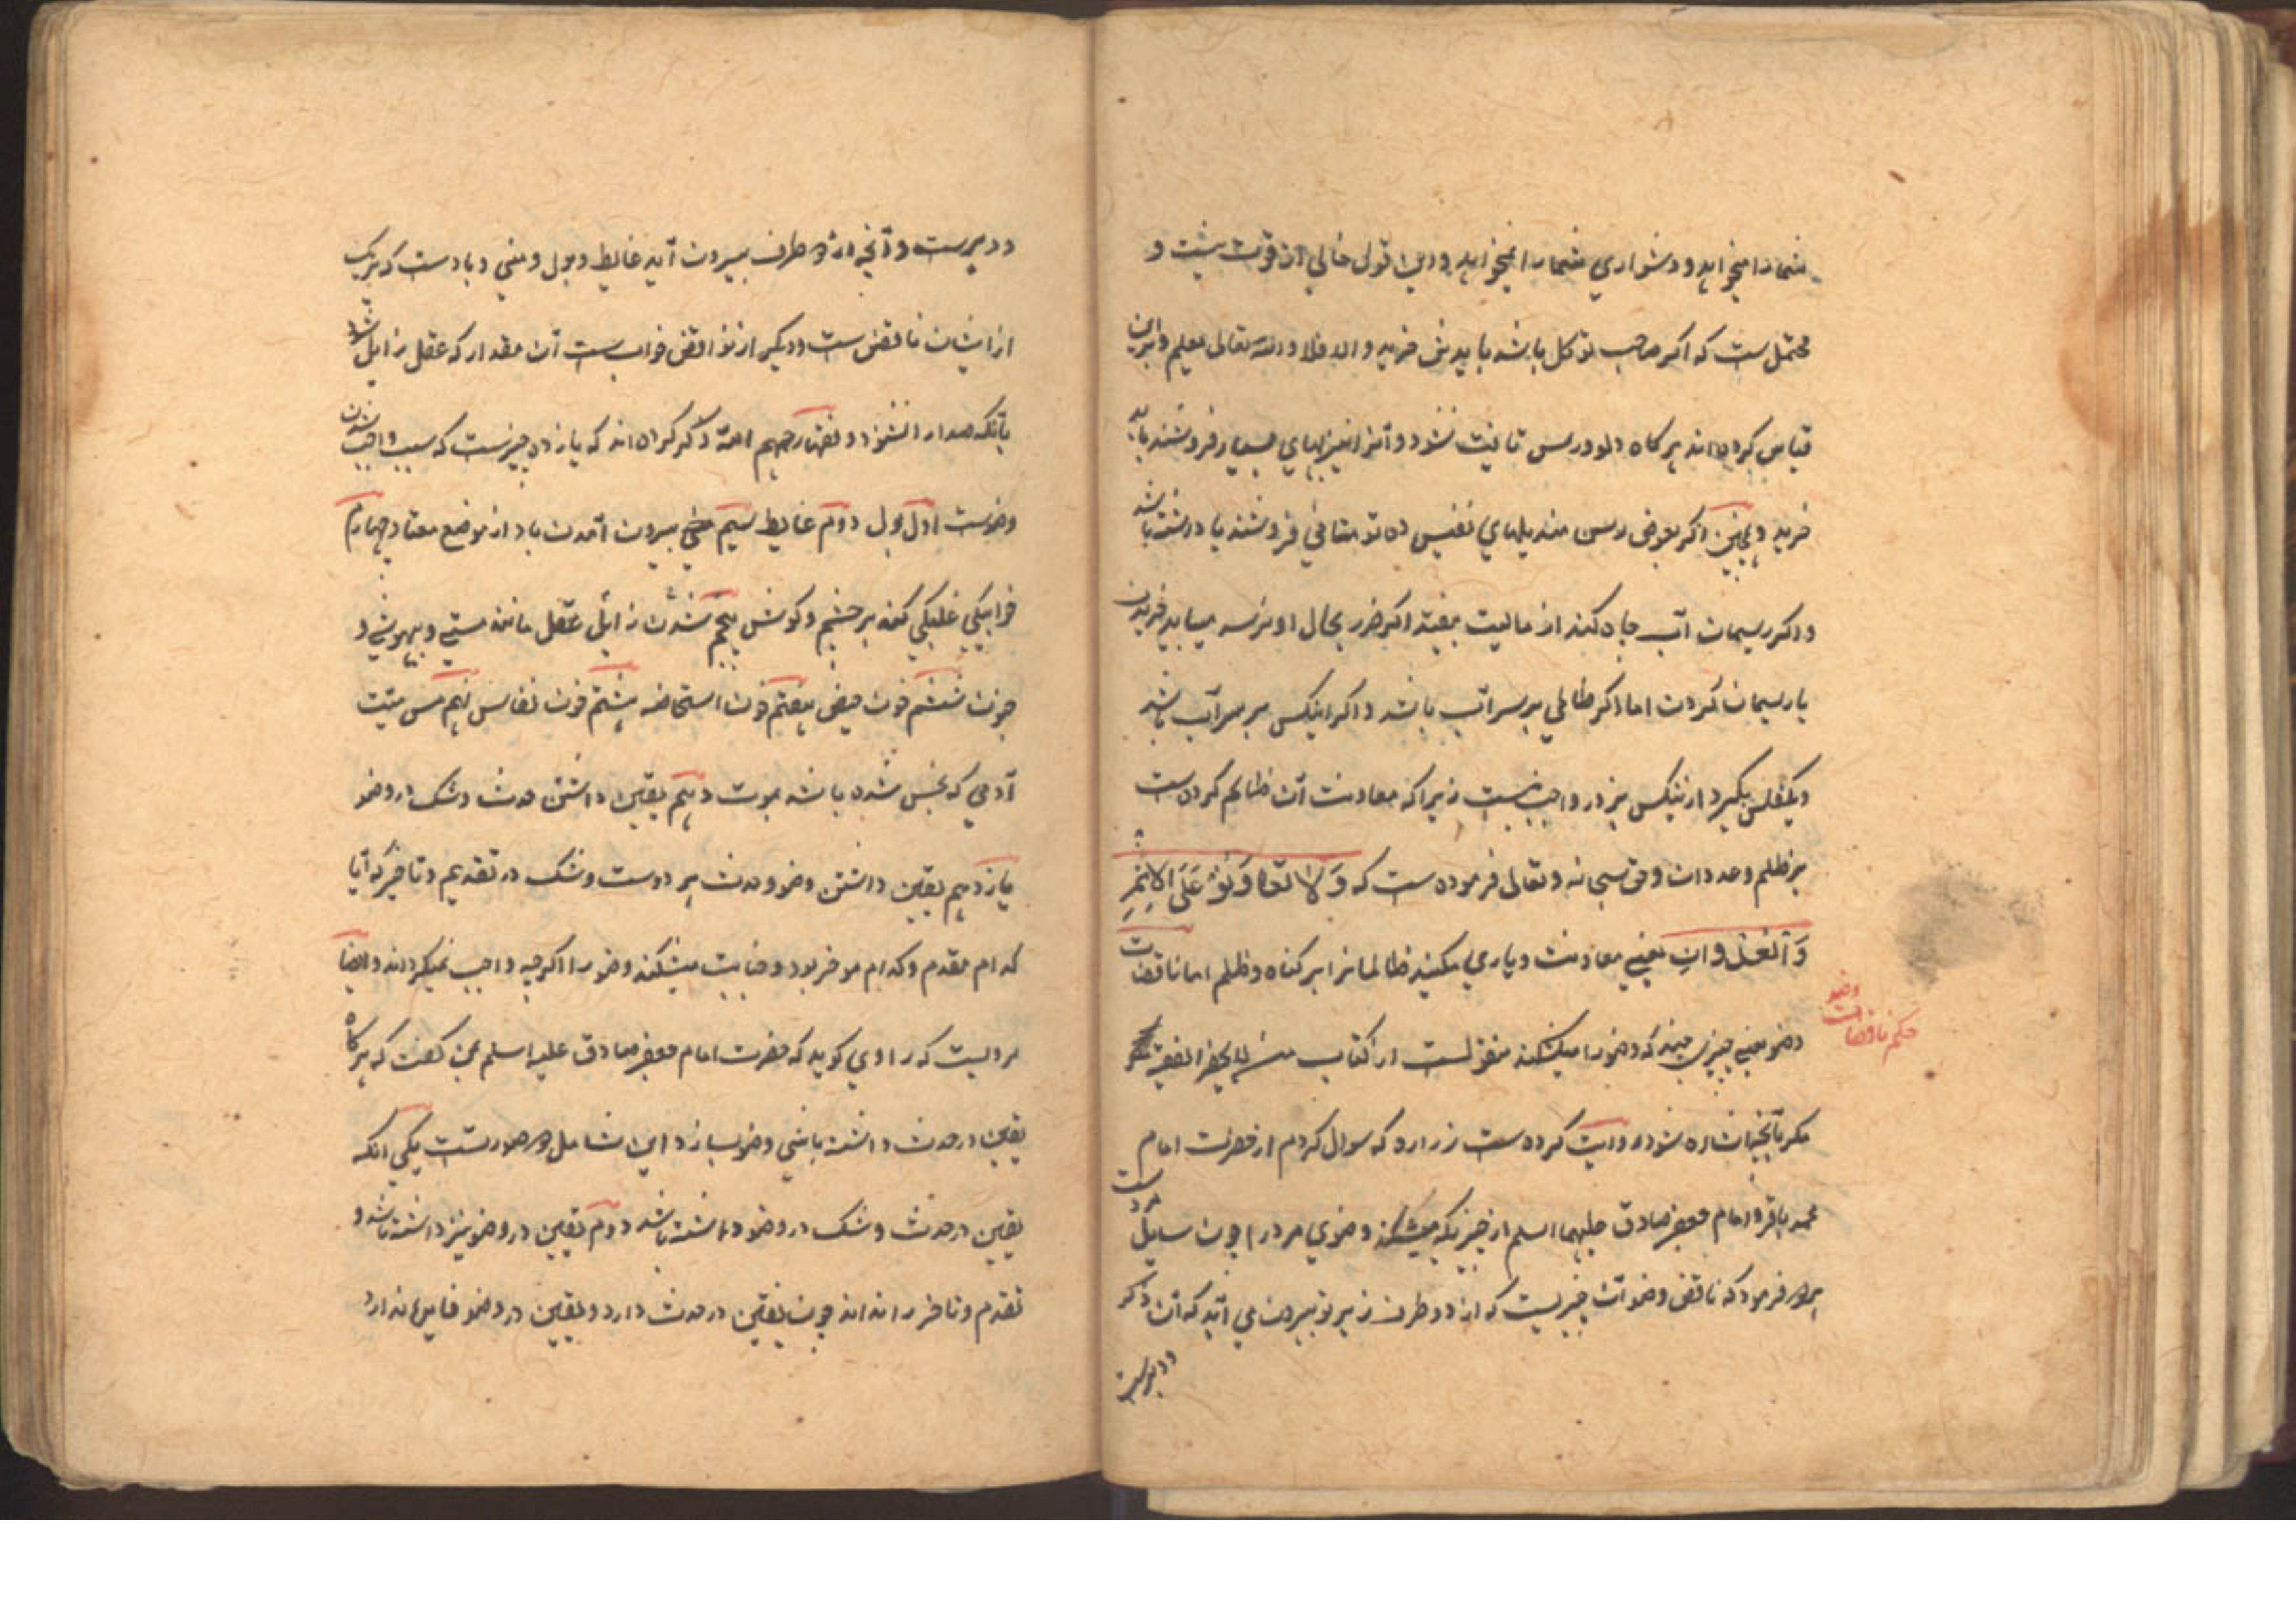 شمارا میخواهد و دشواری شمارا نمیخواهد و این قول خالی از قوت نیست و
محتمل ست که اکر صاحب توکل باشد باید خرید و الا فلا والله تعالی یعلم و برین
قیاس کرده اند هرکاه دلو و رسن تا نشود و آنرا بهای بسیار فروشند باید
خرید و همچنین اکر بعوض رسن مندیلهای نفیس فروشند یا داشته باشد
و اکر ریسمان آب چاه کند از مالیت بیفتد اکر ضرر بحال او نرسد میباید خریدن
یا ریسمان کردن اما اکر ظالمی بر سر آب باشد و اکر اینکس بر سر آب باشد
و یکفلس بکیرد از ینکس بزور واجب نیست زیرا که معاونت آن ظالم کرده است
بر ظلم و عدوان و حق سبحانه و تعالی فرموده ست که وَلا تعاوَنُوْ عَلَی الاِثمِ
وَ العُدْوانِ یعنی معاونت و یاری مکنید ظالمانرا بر کناه و ظلم اما ناقضات
وضو یعنی چیزی چند که وضو را میشکند منقولست از کتاب من لا یحضر الفقیه که
حکم ناقضات وضو
مکر بآنچه اشاره شود روایت کرده ست زراره که سوال کردم از حضرت امام
محمد باقر و امام جعفر صادق علیهما السلم از چیزیکه میشکند وضوی مرد را چون سایل مرد است
فرمود که ناقض وضو آن چیزیست که از دو طرف زیر تو بیرون می آید که آن ذکر
و دبرست
و دبرست و آنچه از دو طرف بیرون آید غایط و بول و منی و بادست که هریک
از ایشان ناقض ست و دیکر از نواقض خواب ست آن مقدار که عقل زایل شود
بآنکه صدا را نشنود و فقها رحمهم الله ذکر کرده اند که یازده چیزست که سبب واجب شدن
وضوست اول بول دوم غایط سیم بیرون آمدن باد از موضع معتاد چهارم
خوابیکی غلبکی کند بر چشم و کوش پنجم شدن زایل عقل مانند مستی و بیهوشی و
جنون ششم خون حیض هفتم خون استحاضه هشتم خون نفاس نهم مس میت
آدمی که نجس شده باشد بموت دهم یقین داشتن حدث و شک در وضو
یازدهم یقین داشتن وضو و حدث هر دوست و شک در تقدیم و تاخیر که آیا
کدام مقدم و کدام موخر بود و جنابت میشکند وضو را اکرچه واجب نمیکرداند و ایضا
مرویست که راوی کوید که حضرت امام جعفر صادق علیه اسلم بمن کفت که هرکاه
یقین در حدث داشته باشی وضو بساز و این شامل دو صورتست یکی آنکه
یقین در حدث و شک در وضو داشته باشد دوم یقین در وضو نیز داشته باشد و
تقدم و تاخر را نداند چون یقین در حدث دارد و یقین در وضو فایده ندارد